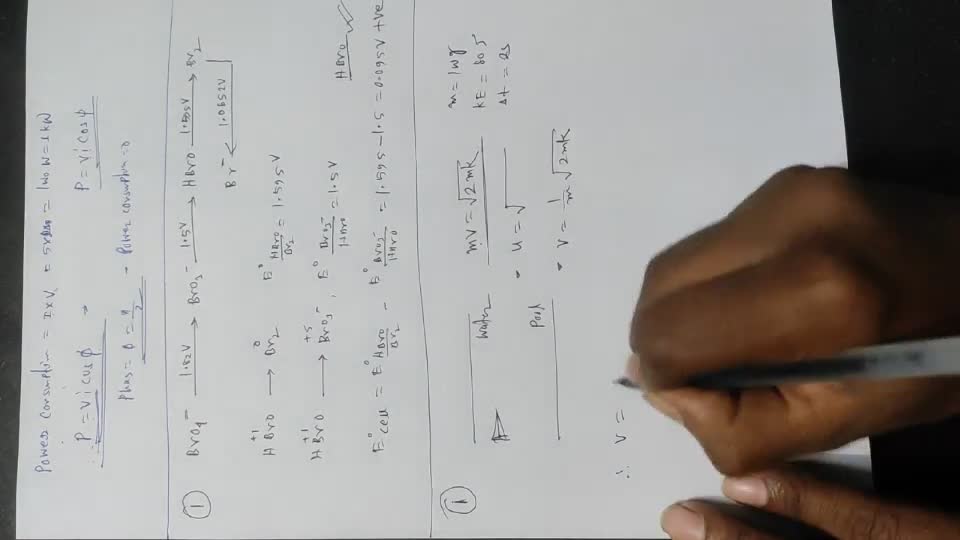 Power consumption = I×V = = 1000 W = 1 kW
P = Vi cos φ → P = Vi cos φ
Phas = φ = π/2 → Power consumption = 0
①
BrO4⁻ —1.82V→ BrO3⁻ —1.5V→ HBrO —1.595V→ Br2
Br⁻ ← 1.0652V
HBrO (+1) → Br2 (0) E° HBrO/Br2 = 1.595 V
HBrO (+1) → BrO3⁻ (+5), E° BrO3⁻/HBrO = 1.5 V
HBrO ✓
E°cell = E° HBrO/Br2 - E° BrO3⁻/HBrO = 1.595 - 1.5 = 0.095V +ve
①
Water
Pool
mv = √2mK
• u = √
• v = 1/m √2mK
KE = 80 J
Δt = 2s
∴ v =